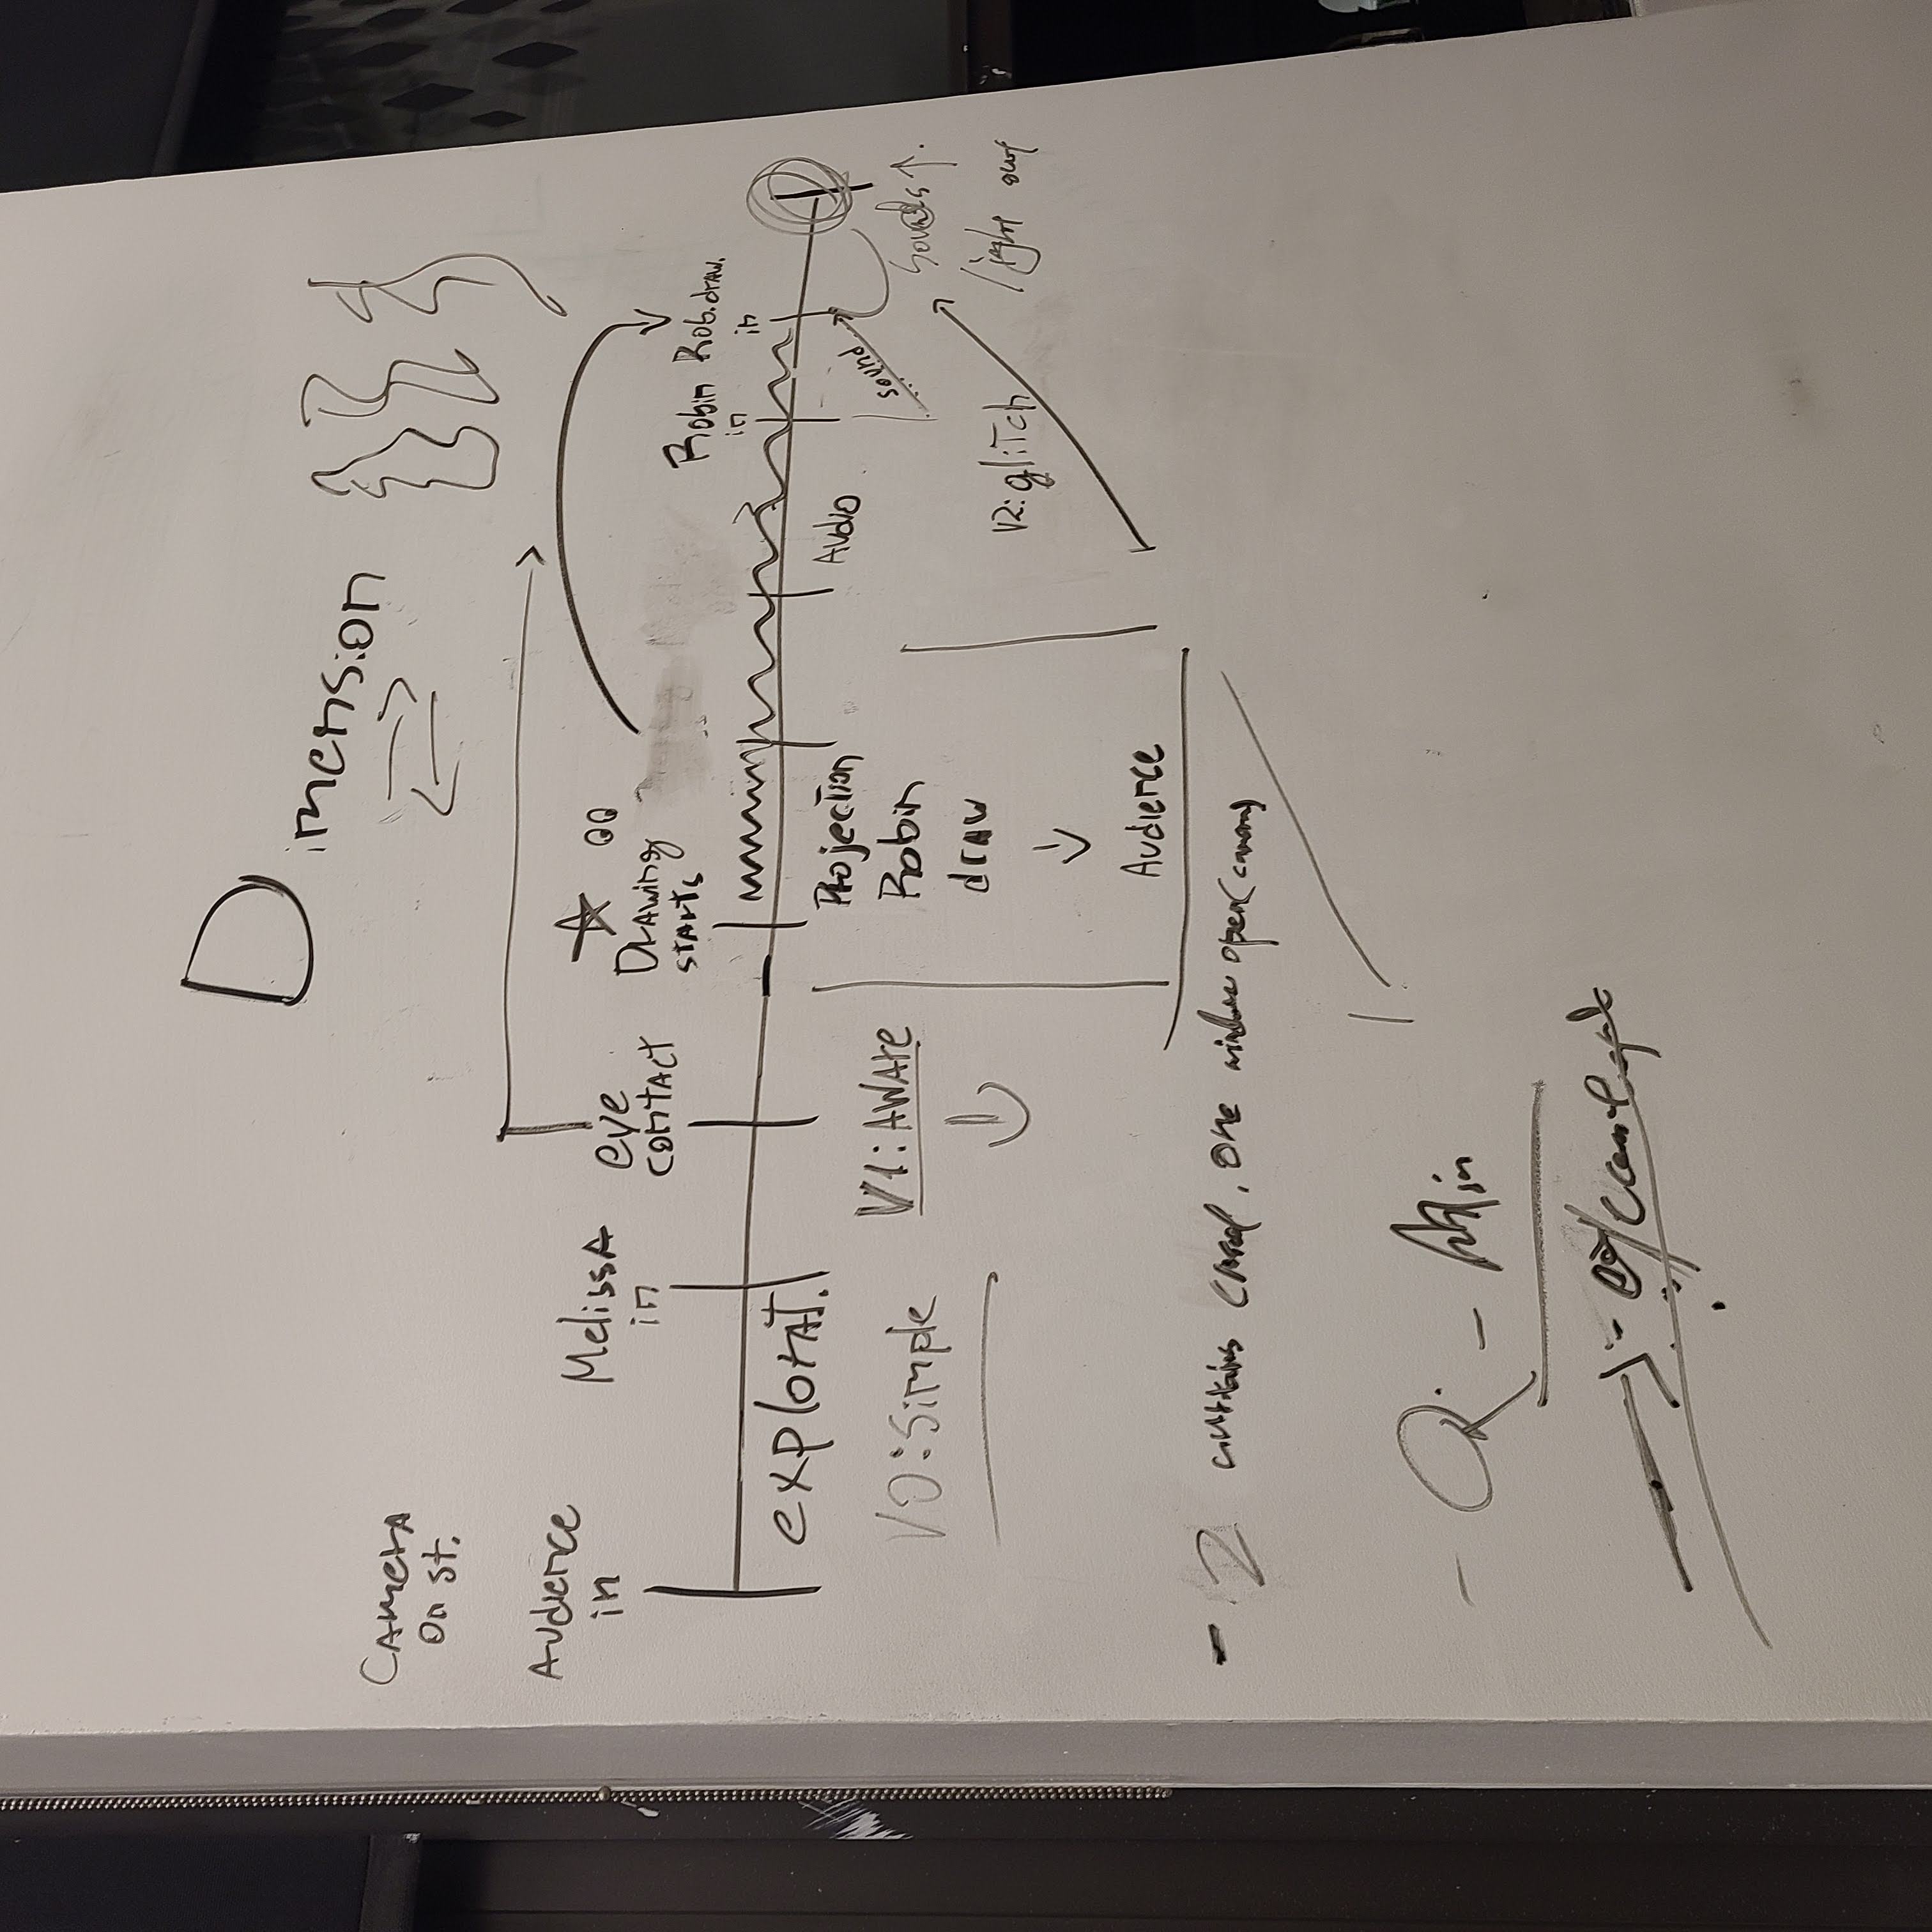 Dimension
CAMERA
On st.
Audience
in
MelissA
in
eye
contact
Drawing
starts
Robin
in
Rob.draw.
in
explorat.
Projection
Robin
draw
Audience
Audio
sound
V0:Simple
V1:AWAre
V2:glitch
Sounds ↑.
light out
- 2 curtains closed, one window open
- Q - Min